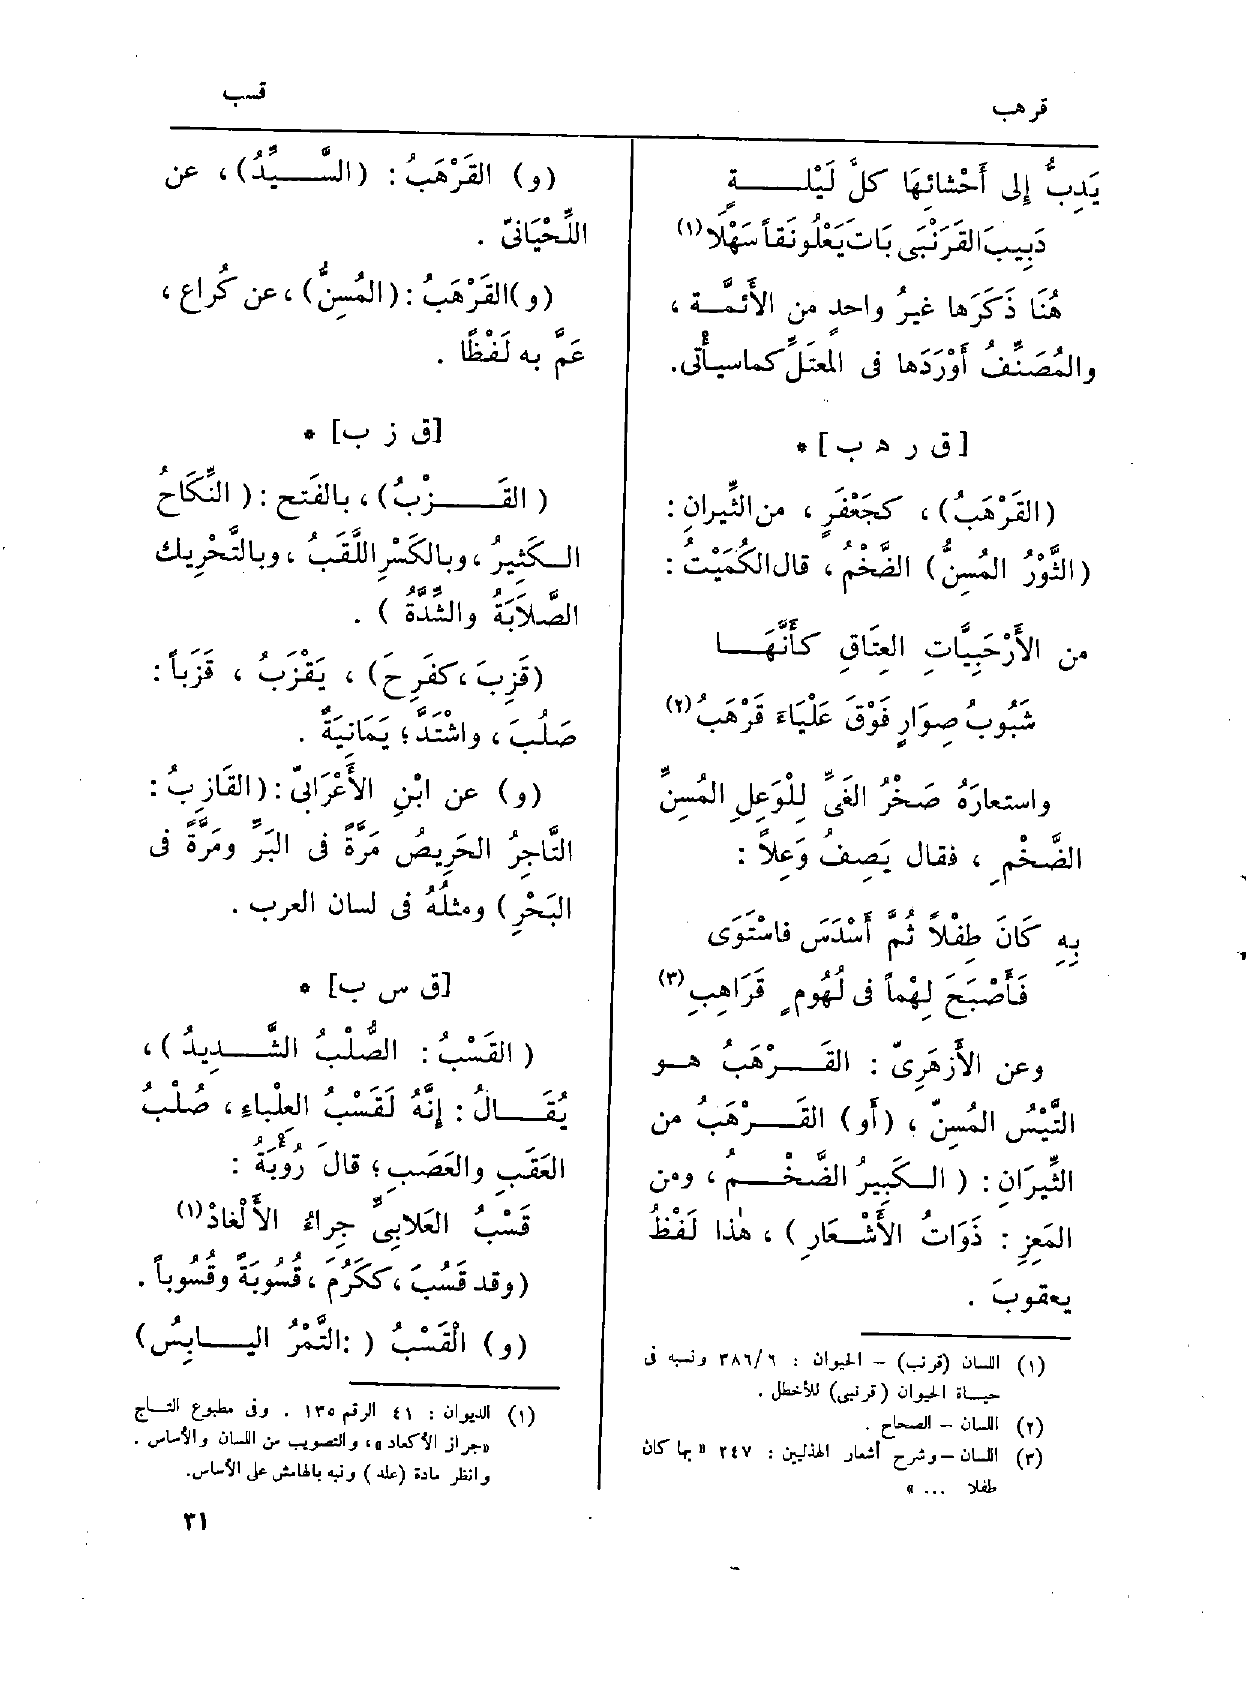 قرهب
قسب
يَدِبُّ إِلى أَحْشائِهَا كلَّ لَيْلـــةٍ
دَبِيبَ القَرَنْبَى بَاتَ يَعْلُو نَقاً سَهْلَا(١)
هُنَا ذَكَرَها غيرُ واحدٍ من الأَئمَّـة ،
والمُصَنِّفُ أَوْرَدَها فى المعتَلِّ كما سيأْتى.
[ ق ر ه ب ] *
(القَرْهَبُ) ، كجَعْفَرٍ ، من الثِّيرانِ :
(الثَّوْرُ المُسِنُّ) الضَّخْمُ ، قال الكُمَيْتُ :
من الأَرْحَبِيَّاتِ العِتَاقِ كأَنَّهَـا
شَبُوبُ صِوَارٍ فَوْقَ عَلْيَاءَ قَرْهَبُ(٢)
واستعارَهُ صَخْرُ الغَىِّ لِلْوَعِلِ المُسِنِّ
الضَّخْمِ ، فقال يَصِفُ وَعِلاً :
بِهِ كَانَ طِفْلاً ثُمَّ أَسْدَسَ فاسْتَوَى
فَأَصْبَحَ لِهْماً فى لُهُومٍ قَرَاهِبِ(٣)
وعن الأَزهَرِىّ : القَـــرْهَبُ هـو
التَّيْسُ المُسِنّ ، (أَو) القَـــرْهَبُ من
الثِّيرَانِ : ( الـكَبِيرُ الضَّخْـــمُ ، ومن
المَعِزِ : ذَوَاتُ الأَشْـعَارِ ) ، هٰذا لَفْظُ
يعقوبَ .
(١) اللسان (قرنب) – الحيوان : ٣٨٦/٦ ونسبه فى
حيـاة الحيوان (قرنبى) للأخطل .
(٢) اللسان – الصحاح .
(٣) اللسان – وشرح أشعار الهذليين : ٢٤٧ « بها كان
طفلا ... »
(و) القَرْهَبُ : (السَّـــيِّدُ) ، عن
اللِّحْيَانىّ .
(و)القَرْهَبُ : (المُسِنُّ) ، عن كُراع ،
عَمَّ به لَفْظًا .
[ق ز ب] *
( القَـــزْبُ) ، بالفَتح : ( النِّكَاحُ
الـكَثِيرُ ، وبالكَسْرِ اللَّقَبُ ، وبالتَّحْرِيك
الصَّلَابَةُ والشِّدَّةُ ) .
(قَزِبَ ، كفَرِحَ) ، يَقْزَبُ ، قَزَباً :
صَلُبَ ، واشْتَدَّ ؛ يَمَانِيَةٌ .
(و) عن ابْنِ الأَعْرَابىّ : (القَازِبُ :
التَّاجِرُ الحَرِيصُ مَرَّةً فى البَرِّ ومَرَّةً فى
البَحْرِ) ومثلُهُ فى لسان العرب .
[ق س ب] *
( القَسْبُ : الصُّلْبُ الشَّـــدِيدُ ) ،
يُقَـــالُ : إِنَّهُ لَقَسْبُ العِلْباءِ ، صُلْبُ
العَقَبِ والعَصَبِ ؛ قالَ رُؤْبَةُ :
قَسْبُ العَلابِىِّ جِراءُ الأَلْغادْ(١)
(وقد قَسُبَ ، ككَرُمَ ، قُسُوبَةً وقُسُوباً .
(و) الْقَسْبُ ( :التَّمْرُ اليـــابِسُ)
(١) الديوان : ٤١ الرقم ١٣٥ . وفى مطبوع التـاج
«جراز الأكعاد» ، والتصويب من اللسان والأساس .
وانظر مادة (علد ) ونبه بالهامش على الأساس.
٣١